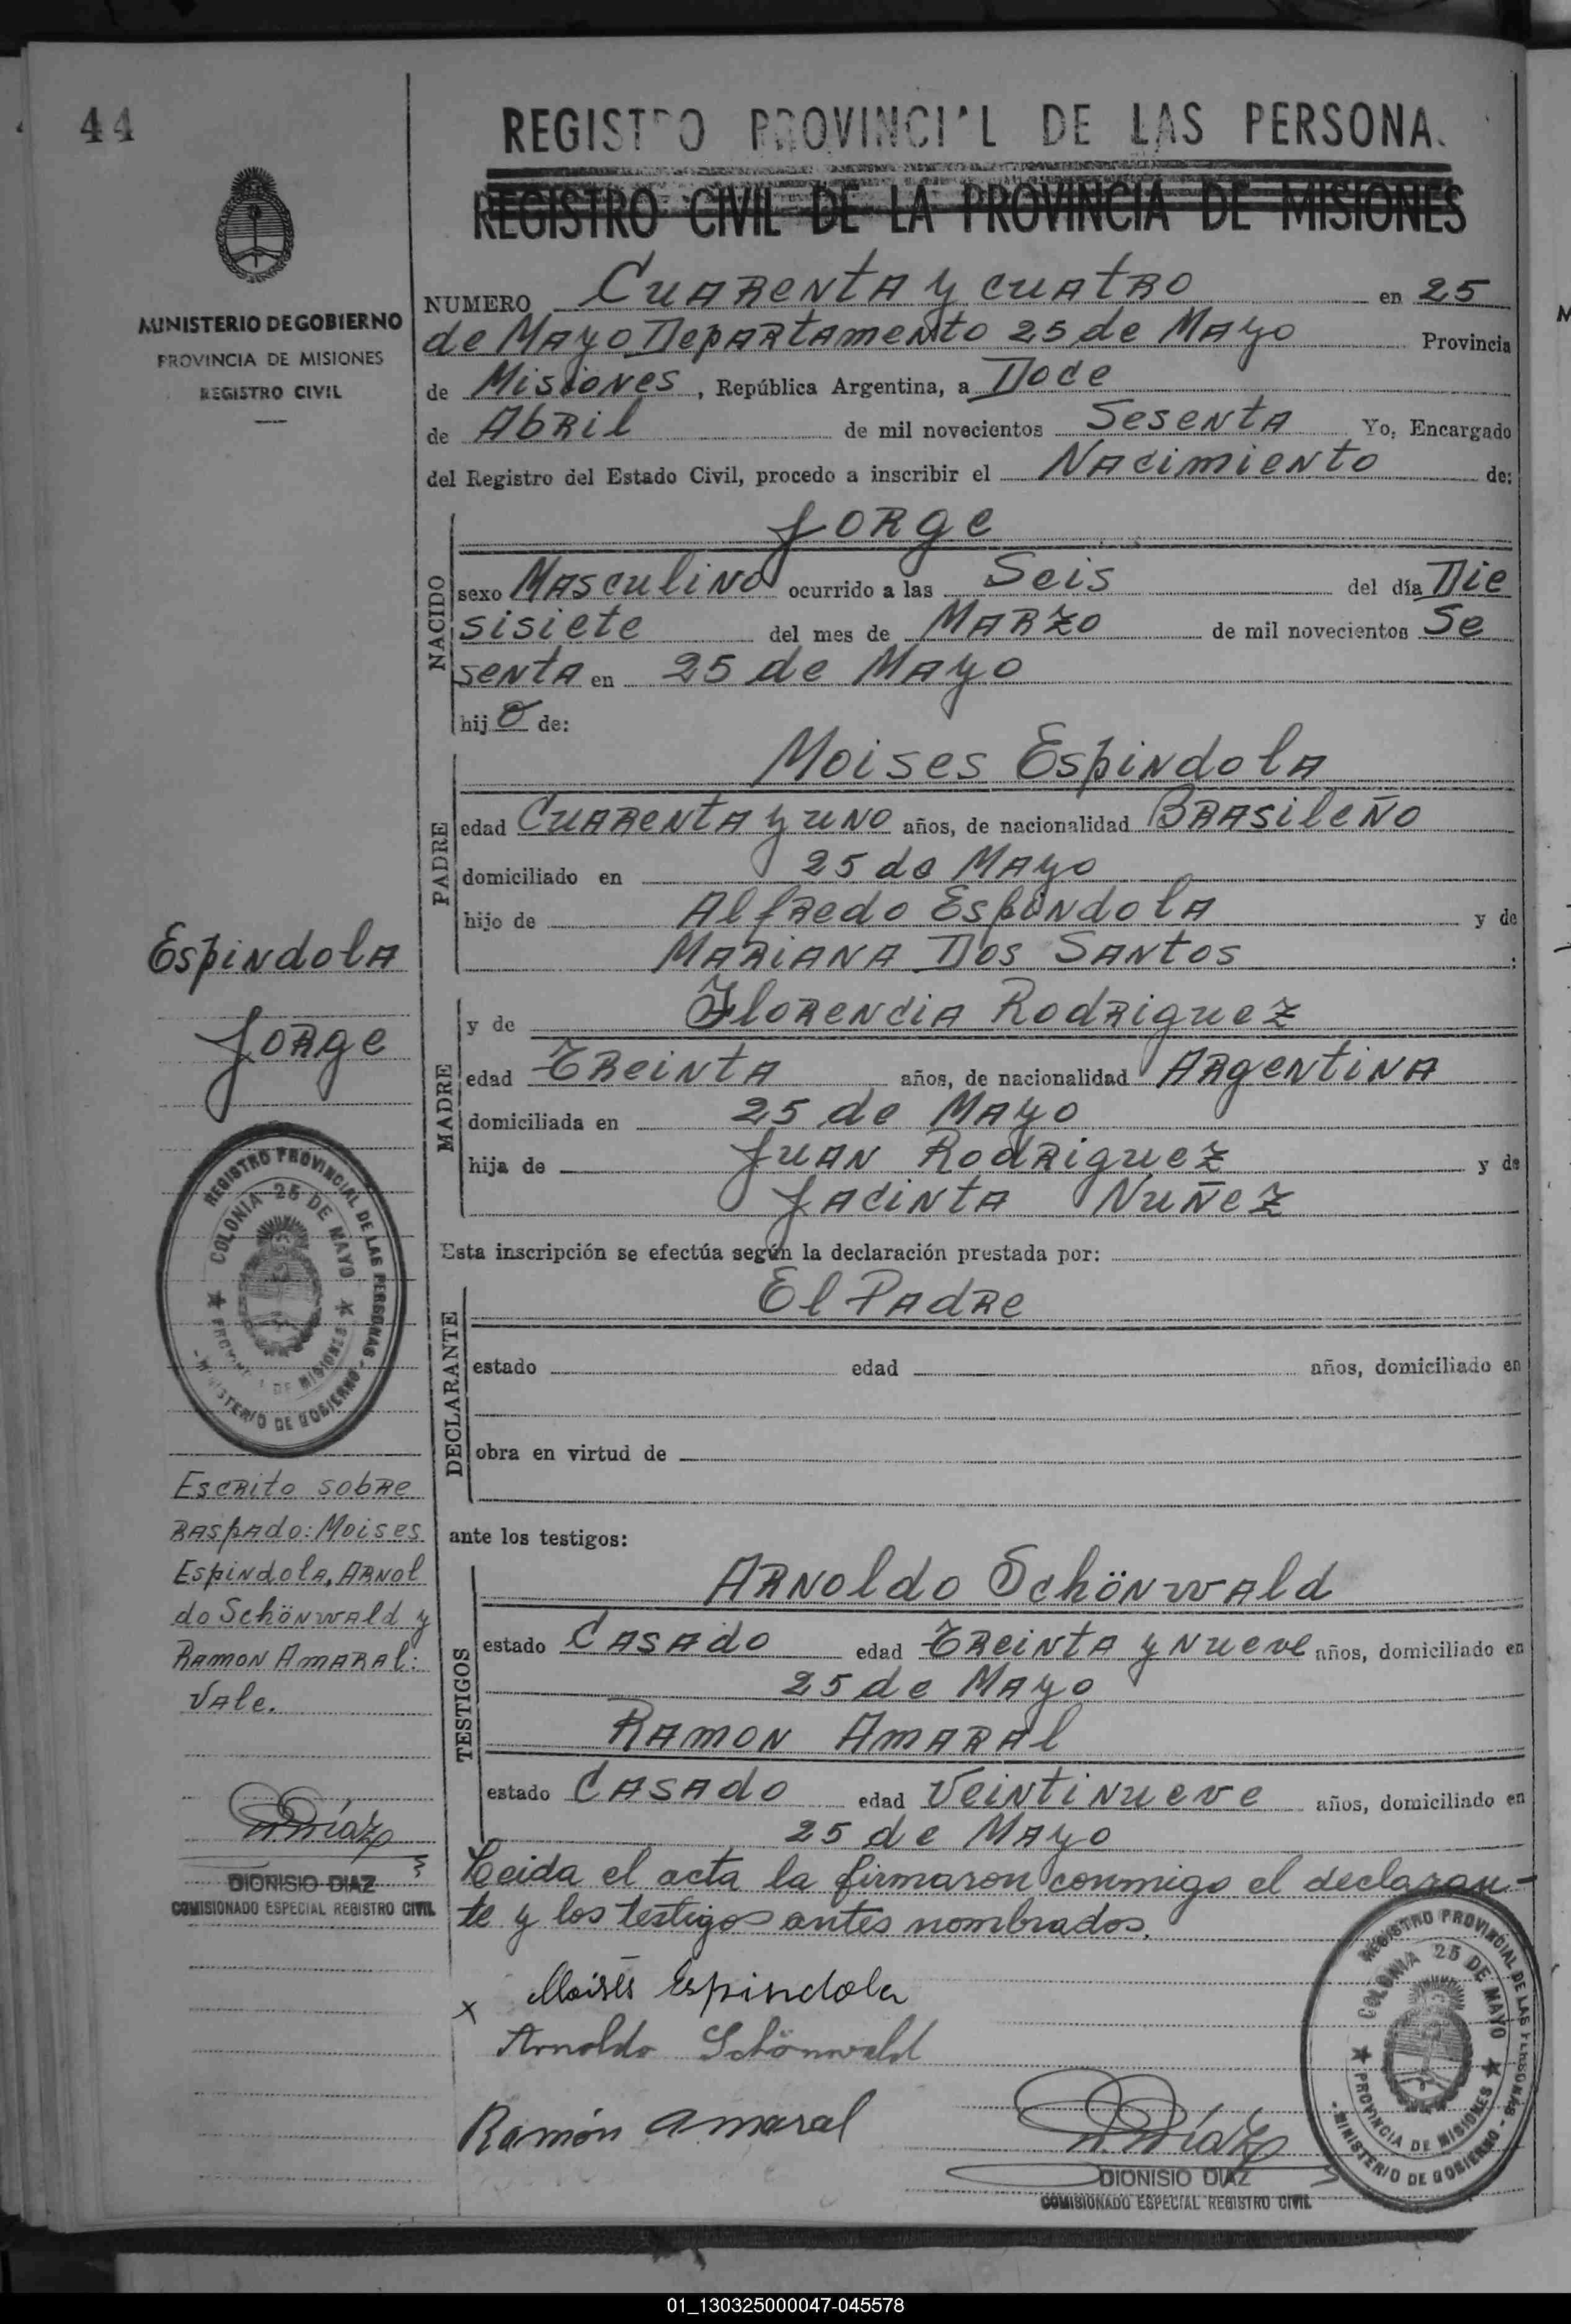 44
REGISTRO PROVINCIAL DE LAS PERSONA
REGISTRO CIVIL DE LA PROVINCIA DE MISIONES
MINISTERIO DE GOBIERNO
PROVINCIA DE MISIONES
REGISTRO CIVIL
NUMERO Cuarenta y cuatro en 25
de Mayo Departamento 25 de Mayo Provincia
de Misiones, República Argentina, a Doce
de Abril de mil novecientos Sesenta Yo, Encargado
del Registro del Estado Civil, procedo a inscribir el Nacimiento de:
NACIDO
Jorge
sexo Masculino ocurrido a las Seis del día Die
sisiete del mes de Marzo de mil novecientos Se
senta en 25 de Mayo
hijo de:
PADRE
Moises Espindola
edad Cuarenta y uno años, de nacionalidad Brasileño
domiciliado en 25 de Mayo
hijo de Alfredo Espindola y de
Mariana Dos Santos :
MADRE
y de Florencia Rodriguez
edad Treinta años, de nacionalidad Argentina
domiciliada en 25 de Mayo
hija de Juan Rodriguez y de
Jacinta Nuñez
Esta inscripción se efectúa según la declaración prestada por:
DECLARANTE
El Padre
estado edad años, domiciliado en
obra en virtud de
ante los testigos:
TESTIGOS
Arnoldo Schönwald
estado Casado edad Treinta y nueve años, domiciliado en
25 de Mayo
Ramon Amaral
estado Casado edad Veintinueve años, domiciliado en
25 de Mayo
Leida el acta la firmaron conmigo el declaran-
te y los testigos antes nombrados.
x Moisés Espindola
Arnoldo Schönwald
Ramón Amaral
D. Díaz
DIONISIO DIAZ
COMISIONADO ESPECIAL REGISTRO CIVIL
REGISTRO PROVINCIAL DE LAS PERSONAS
COLONIA 25 DE MAYO
PROVINCIA DE MISIONES
- MINISTERIO DE GOBIERNO -
Espindola
Jorge
REGISTRO PROVINCIAL DE LAS PERSONAS
COLONIA 25 DE MAYO
PROVINCIA DE MISIONES
- MINISTERIO DE GOBIERNO -
Escrito sobre
raspado: Moises
Espindola, Arnol
do Schönwald y
Ramon Amaral:
Vale.
D. Díaz
DIONISIO DIAZ
COMISIONADO ESPECIAL REGISTRO CIVIL
01_130325000047-045578